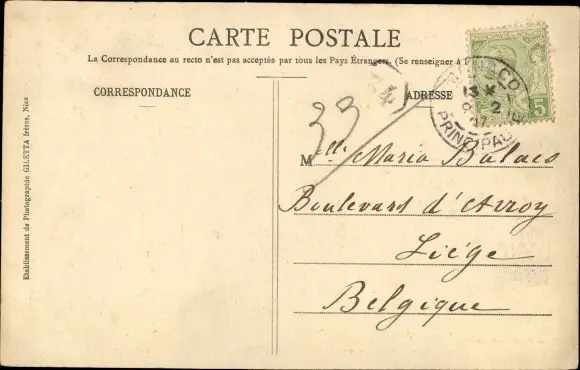 CARTE POSTALE
La Correspondance au recto n'est pas acceptée par tous les Pays Étrangers. (Se renseigner à
CORRESPONDANCE
ADRESSE
5
MONACO
PRINCIPAUTE
33
Mlle Maria Balaes
Boulevard d'Avroy
Liége
Belgique
Etablissement de Photographie GILETTA frères, Nice